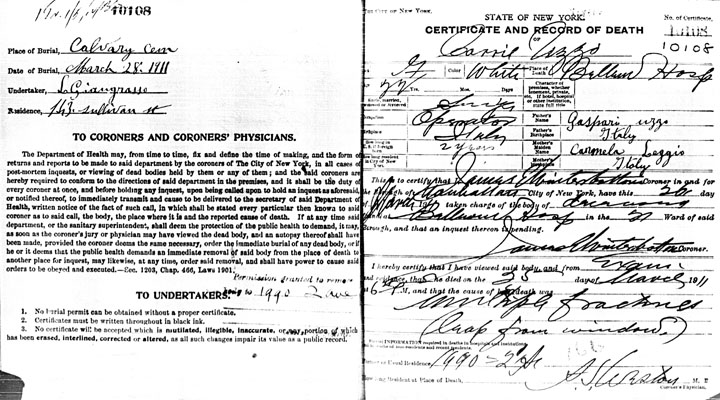 10108
Place of Burial, Calvary Cem
Date of Burial, March 28, 1911
Undertaker, L. Giangrasso
Residence, Sullivan st
TO CORONERS AND CORONERS' PHYSICIANS.
The Department of Health may, from time to time, fix and define the time of making, and the form of
returns and reports to be made to said department by the coroners of The City of New York, in all cases of
post-mortem inquests, or viewing of dead bodies held by them or any of them; and the said coroners are
hereby required to conform to the directions of said department in the premises, and it shall be the duty of
every coroner at once, and before holding any inquest, upon being called upon to hold an inquest as aforesaid,
or notified thereof, to immediately transmit and cause to be delivered to the secretary of said Department of
Health, written notice of the fact of such call, in which shall be stated every particular then known to said
coroner as to said call, the body, the place where it is and the reported cause of death. If at any time said
department, or the sanitary superintendent, shall deem the protection of the public health to demand, it may,
as soon as the coroner's jury or physician may have viewed the dead body, and an autopsy thereof shall have
been made, provided the coroner deems the same necessary, order the immediate burial of any dead body, or if
he or it deems that the public health demands an immediate removal of said body from the place of death to
another place for inquest, may likewise, at any time, order said removal, and shall have power to cause said
orders to be obeyed and executed.—Sec. 1203, Chap. 466, Laws 1901.
Permission granted to remove
to 1990 2 Ave
TO UNDERTAKERS.
1. No burial permit can be obtained without a proper certificate.
2. Certificates must be written throughout in black ink.
3. No certificate will be accepted which is mutilated, illegible, inaccurate, or any portion of which
has been erased, interlined, corrected or altered, as all such changes impair its value as a public record.
City of New York.
STATE OF NEW YORK.
No. of Certificate,
CERTIFICATE AND RECORD OF DEATH
10108
10108
Carrie Uzzo
F Color White Place of Death Bellevue Hosp
22 Yrs. Mos. Days
Character of premises, whether tenement, private, etc. If hotel, hospital or other institution, state full title
Single
Operator Father's Name Gaspari Uzzo
Italy Father's Birthplace Italy
2 years Mother's Maiden Name Carmela Leggio
Mother's Birthplace Italy
This to certify that I, James Winterbottom Coroner in and for
the Borough of Manhattan City of New York, have this 26 day
of March 1911 taken charge of the body of deceased
at Bellevue Hosp in the 21 Ward of said
Borough, and that an inquest thereon is pending.
James Winterbottom Coroner.
I hereby certify that I have viewed said body, and from
and evidence, that he died on the 25 day of March 1911
at M., and that the cause of h death was
Multiple fractures
(leap from window)
Special INFORMATION required in deaths in hospitals and institutions
or Usual Residence 1990 2 Av
How long Resident at Place of Death,
M. D.
Coroner's Physician.